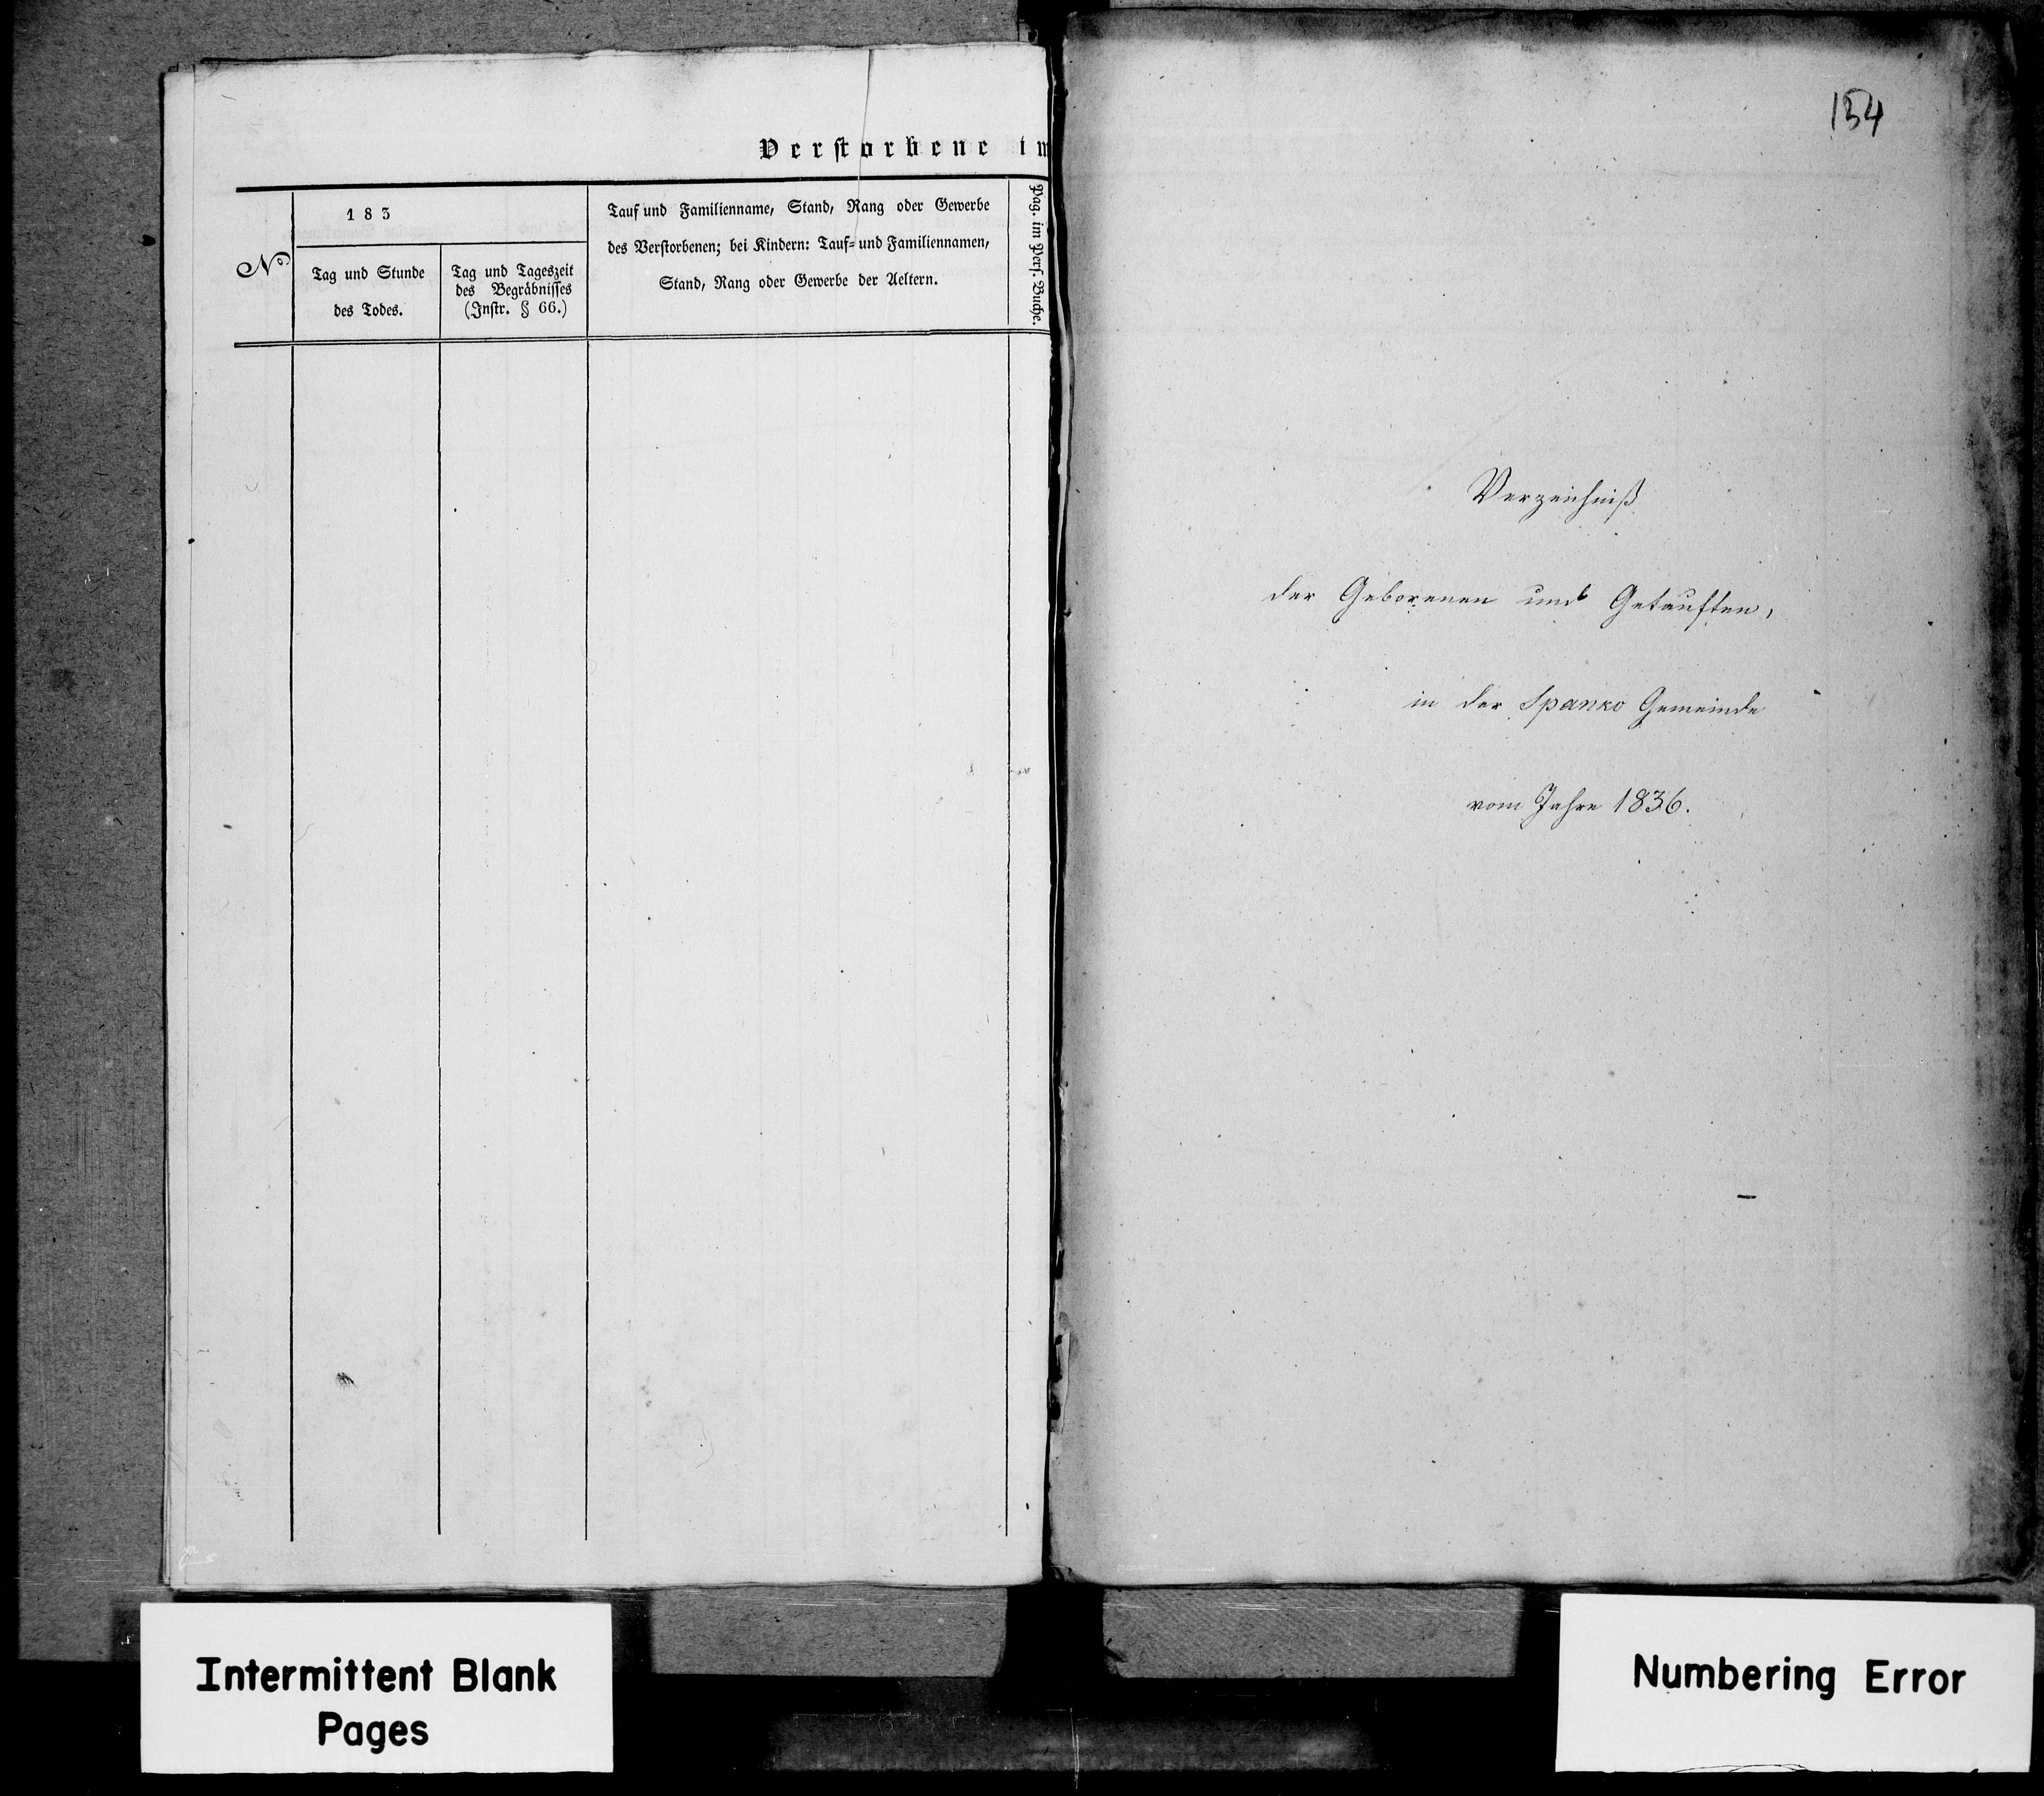 Verstorbene im
No
183
Tag und Stunde
des Todes.
Tag und Tageszeit
des Begräbnisses
(Instr. § 66.)
Tauf und Familienname, Stand, Rang oder Gewerbe
des Verstorbenen; bei Kindern: Tauf- und Familiennamen,
Stand, Rang oder Gewerbe der Aeltern.
Pag. im Pers. Buche.
154
Verzeichniß
der Geborenen und Getauften,
in der Spanko Gemeinde
vom Jahre 1836.
Intermittent Blank
Pages
Numbering Error